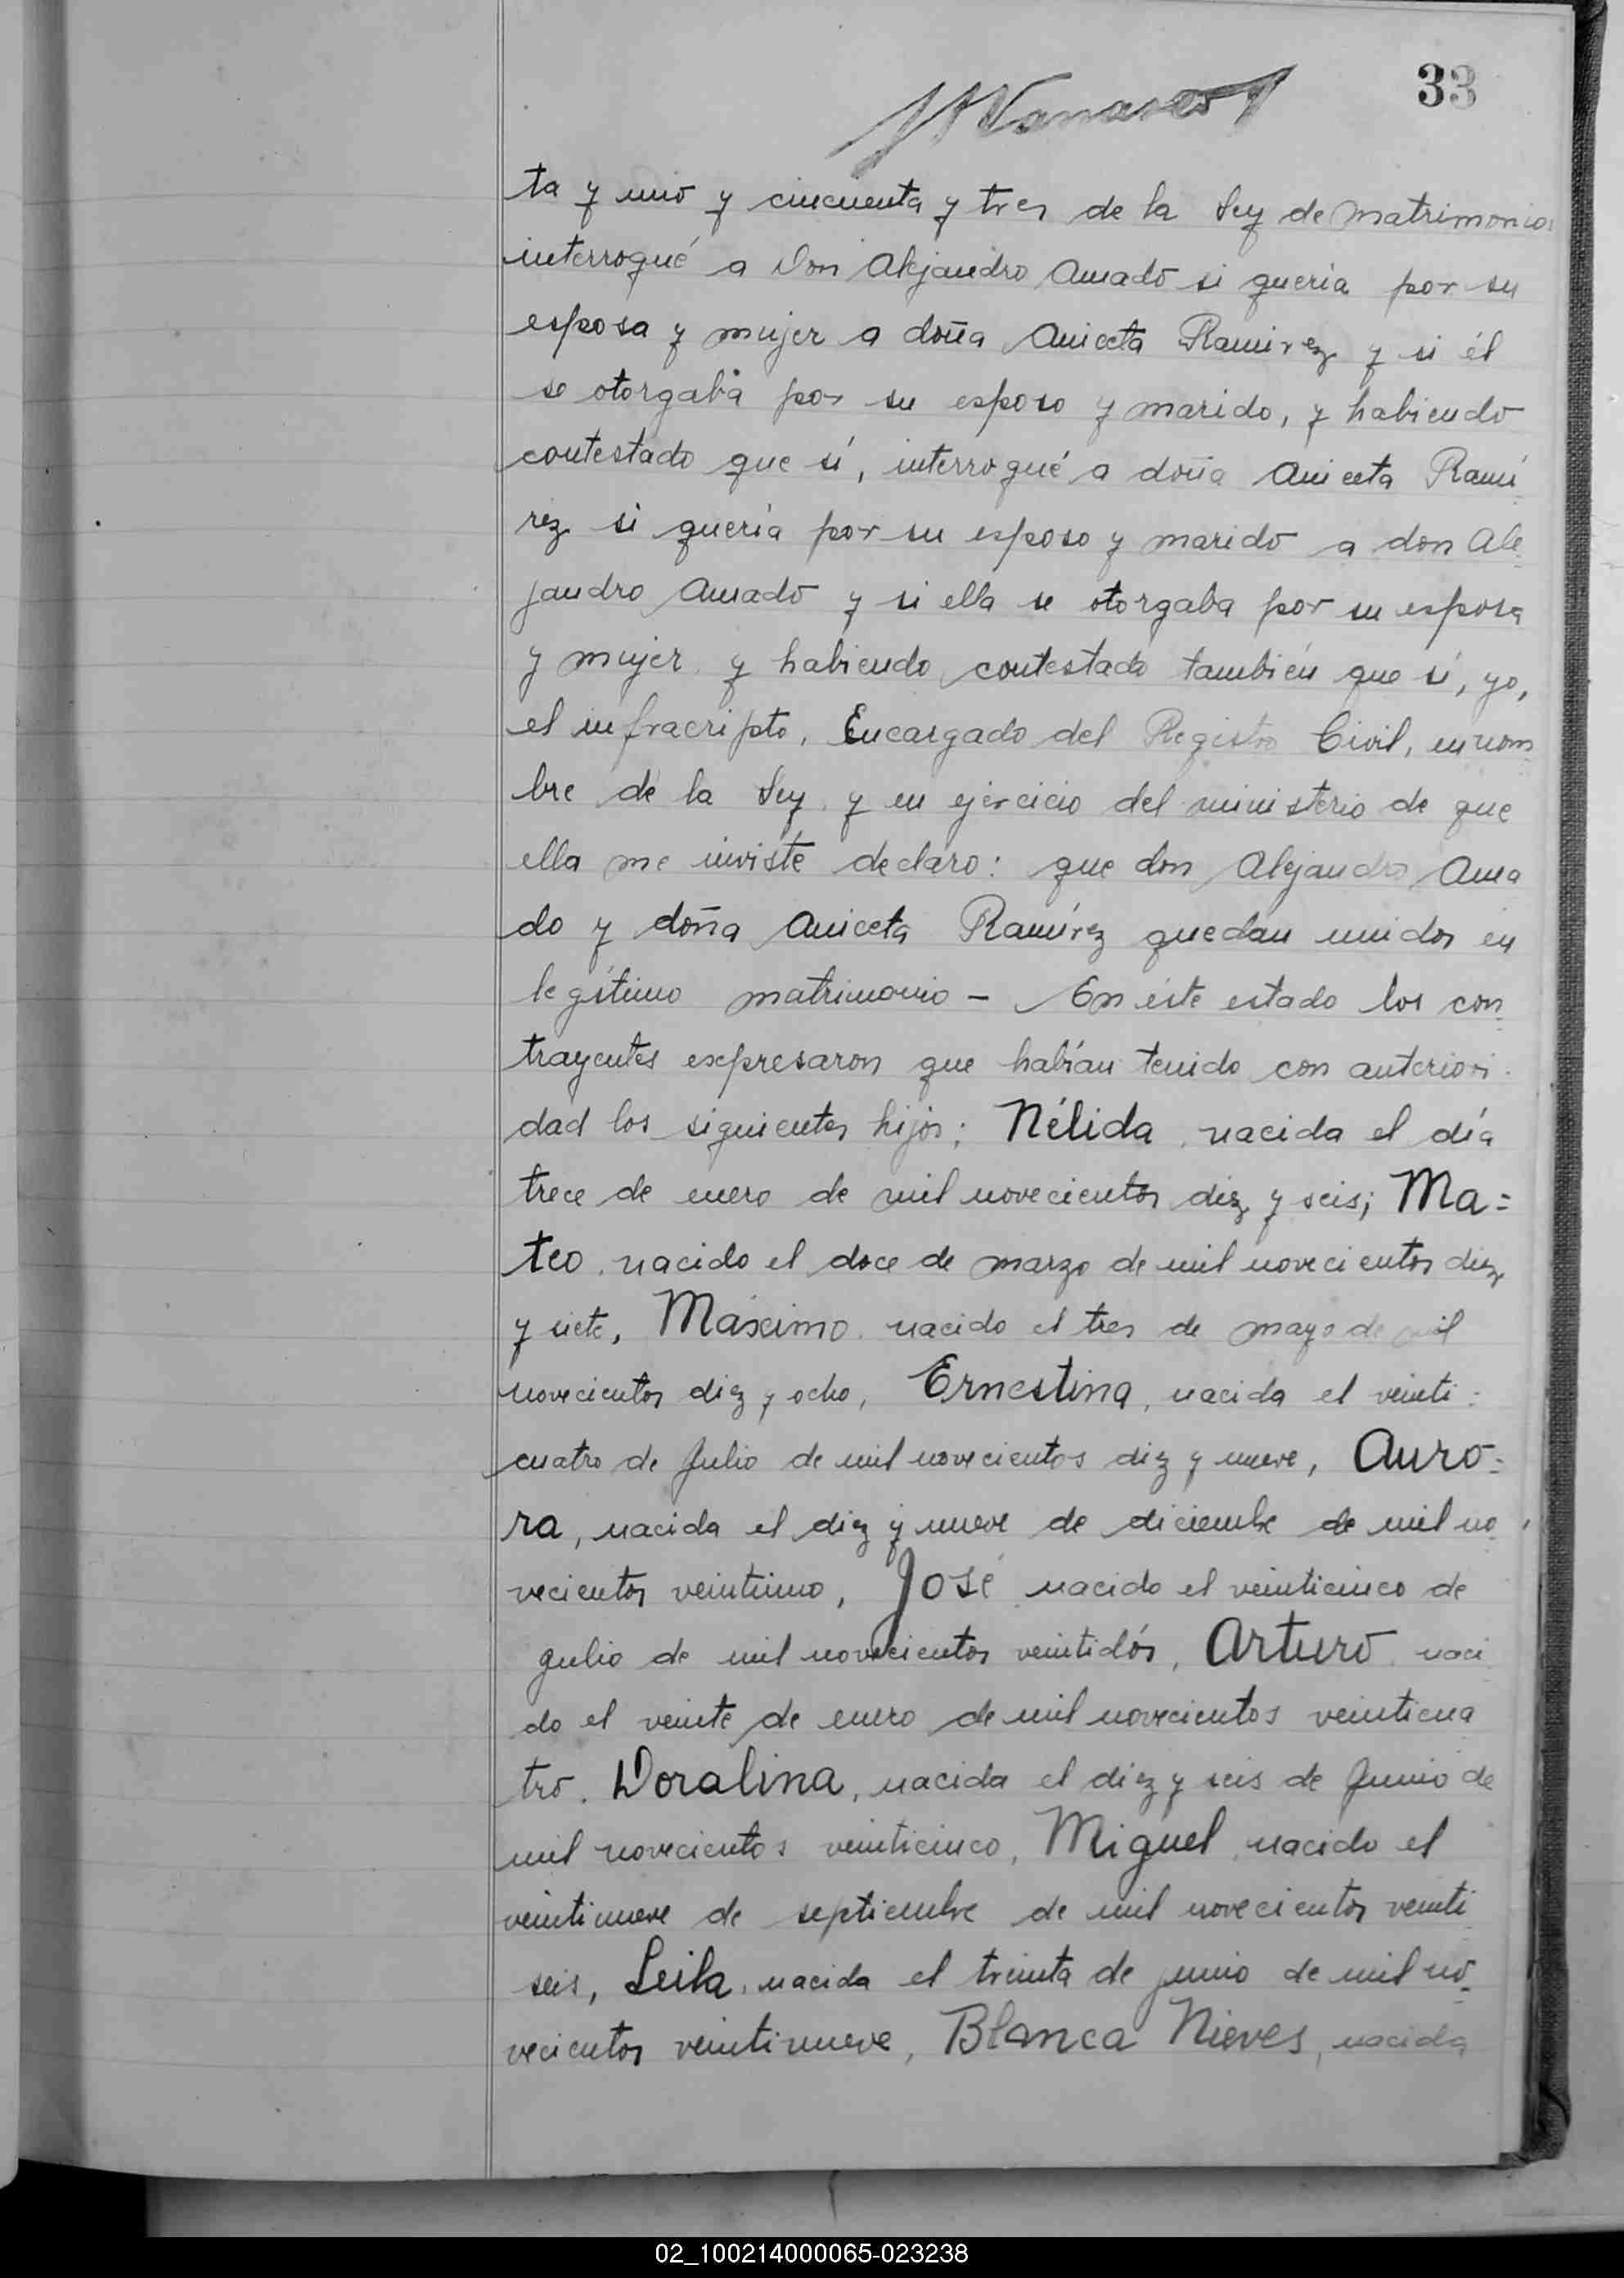 33
ta y uno y cincuenta y tres de la Ley de matrimonio
interrogué a Don Alejandro Amado si quería por su
esposa y mujer a doña Aniceta Ramirez y si él
se otorgaba por su esposo y marido, y habiendo
contestado que sí, interrogué a doña Aniceta Ramí
rez si quería por su esposo y marido a don Ale
jandro Amado y si ella se otorgaba por su esposa
y mujer y habiendo contestado también que sí, yo,
el infracripto, Encargado del Registro Civil, en nom
bre de la Ley y en ejercicio del ministerio de que
ella me inviste declaro: que don Alejandro Ama
do y doña Aniceta Ramírez quedan unidos en
legítimo matrimonio - En éste estado los con
trayentes expresaron que habían tenido con anteriori
dad los siguientes hijos; Nélida, nacida el día
trece de enero de mil novecientos diez y seis; Ma=
teo, nacido el doce de marzo de mil novecientos diez
y siete, Máximo, nacido el tres de mayo de mil
novecientos diez y ocho, Ernestina, nacida el veinti=
cuatro de Julio de mil novecientos diez y nueve, Auro=
ra, nacida el diez y nueve de diciembre de mil no
vecientos veintiuno, José nacido el veinticinco de
julio de mil novecientos veintidós, Arturo naci
do el veinte de enero de mil novecientos veinticua
tro. Doralina, nacida el diez y seis de Junio de
mil novecientos veinticinco, Miguel, nacido el
veintinueve de septiembre de mil novecientos veinti
seis, Leila, nacida el treinta de junio de mil no
vecientos veintinueve, Blanca Nieves, nacida
02_100214000065-023238